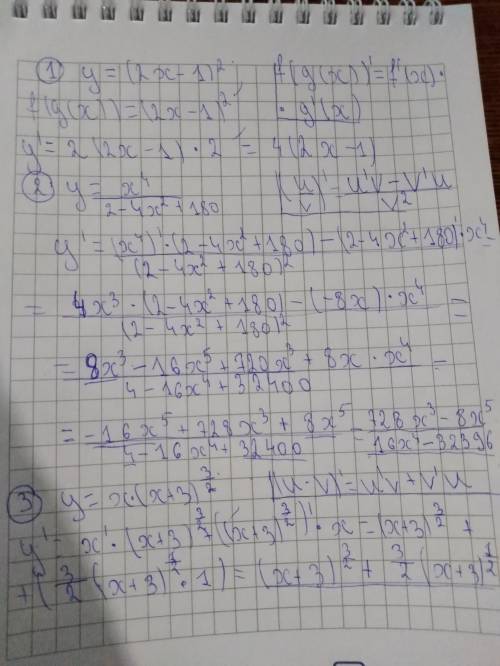 ① y = (2x-1)² f(g(x))' = f'(x)·
f(g(x)) = (2x-1)²' · g'(x)
y' = 2(2x-1)·2 = 4(2x-1)
② y = x⁴/(2-4x²+180) (u/v)' = (u'v - v'u)/v²
y' = ((x⁴)'·(2-4x²+180) - (2-4x²+180)'·x⁴)/(2-4x²+180)² =
= (4x³·(2-4x²+180) - (-8x)·x⁴)/(2-4x²+180)² =
= (8x³ - 16x⁵ + 720x³ + 8x·x⁴)/(4-16x⁴+32400) =
= (-16x⁵ + 728x³ + 8x⁵)/(4-16x⁴+32400) = (728x³ - 8x⁵)/(16x⁴-32396)
③ y = x·(x+3)^(3/2) (u·v)' = u'v + v'u
y' = x'·(x+3)^(3/2) + ((x+3)^(3/2))'·x = (x+3)^(3/2) +
+ (3/2(x+3)^(1/2)·1) = (x+3)^(3/2) + 3/2(x+3)^(1/2)